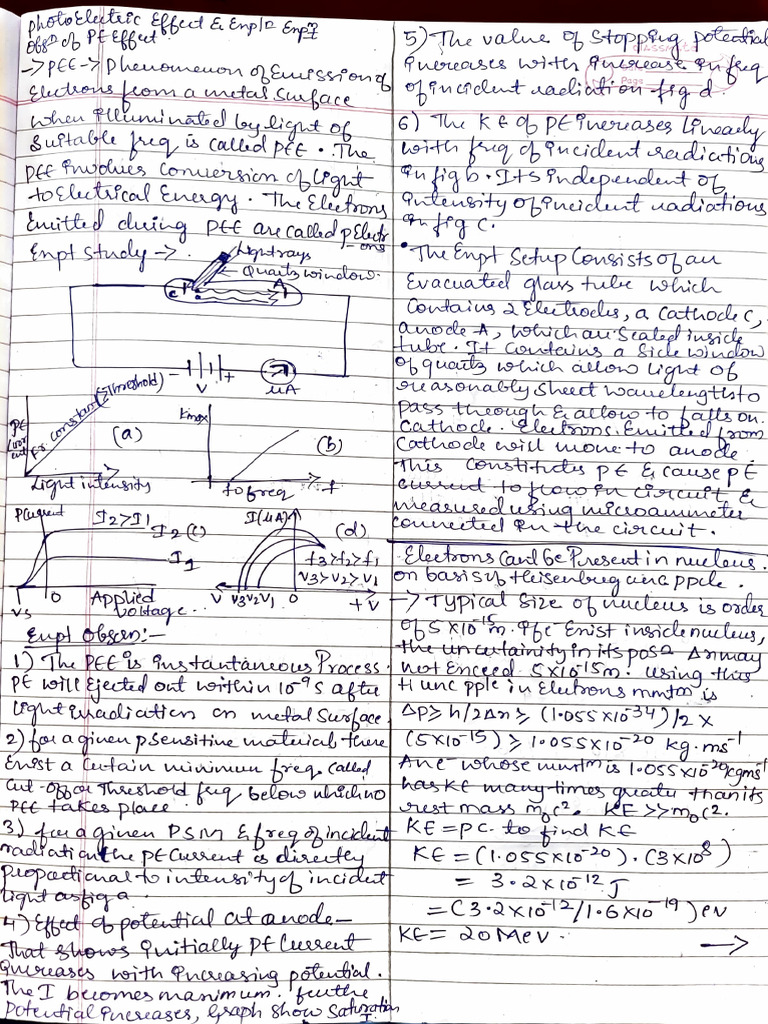 PhotoElectric Effect & Enpl2 Enpn
Obsn of PE Effect.
-> PEE -> Phenomenon of Emission of
Electrons from a metal surface
when illuminated by light of
suitable freq is called PEE. The
PEE involves conversion of light
to Electrical Energy. The Electrons
Emitted during PEE are called pElectr
ons
Enpt study ->.
Light rays
Quartz window.
C
A
V
+
μA
PE
Curr
ent
Fr. constant (≥Threshold)
(a)
Light intensity
Kmax
(b)
fo freq
f
PCurrent
I2>I1
I2 (c)
I1
Vs
0
Applied
voltage.
I(μA)
(d)
f3>f2>f1
V3>V2>V1
V
V3 V2 V1
0
+V
Enpt Obsern:-
1) The PEE is instantaneous Process.
PE will Ejected out within 10⁻⁹ s after
light irradiation on metal surface
2) for a given psensitive material there
Enist a certain minimum freq called
cut-off or Threshold freq below which no
PEE takes place.
3) for a given PSM & freq of incident
radiation the PE Current is directly
proportional to intensity of incident
light as fig a.
4) Effect of potential at anode -
That shows initially PE Current
increases with increasing potential.
The I becomes manimum. further
potential increases, Graph show saturation
I.
5) The value of Stopping potential
increases with increase in freq
of incident radiation fig d.
classmate
Page
6) The KE of PE increases linearly
with freq of incident radiations
in fig b. Its independent of
intensity of incident radiations
in fig c.
• The Enpt Setup Consists of an
Evacuated glass tube which
contains 2 Electrodes, a cathode C,
anode A, which are Sealed inside
tube. It contains a side window
of quartz which allow light of
reasonably short wavelength to
pass through & allow to falls on
cathode. Electrons Emitted from
Cathode will move to anode.
This constitutes PE & cause PE
current to flow in circuit &
measured using microammeter
connected in the circuit.
Electrons Cant be Present in nucleus.
on basis of Heisenburg unc pple.
-> Typical Size of nucleus is order
of 5x10⁻¹⁵m. If e⁻ Enist inside nucleus,
the uncertainity in its posn Δn may
not Exceed 5x10⁻¹⁵m. using this
H unc pple in Elutrons mmtm is
ΔP ≥ h/2Δn ≥ (1.055x10⁻³⁴)/2 x
(5x10⁻¹⁵) ≥ 1.055x10⁻²⁰ kg.ms⁻¹
An e⁻ whose mmtm is 1.055x10⁻²⁰kgms⁻¹
has KE many times greater than its
rest mass m₀c². KE >> m₀c².
KE = PC. to find KE
KE = (1.055x10⁻²⁰).(3x10⁸)
= 3.2x10⁻¹² J
= (3.2x10⁻¹²/1.6x10⁻¹⁹) eV
KE = 20 MeV.
->